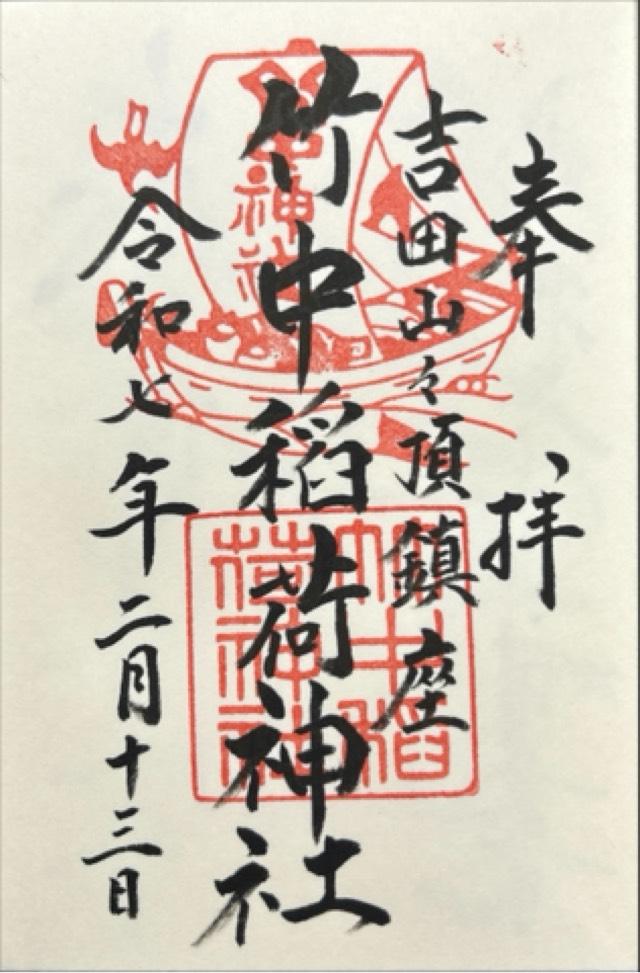 奉拝
吉田山々頂鎮座
竹中稲荷神社
令和七年二月十三日
神社
竹中稲
荷神社